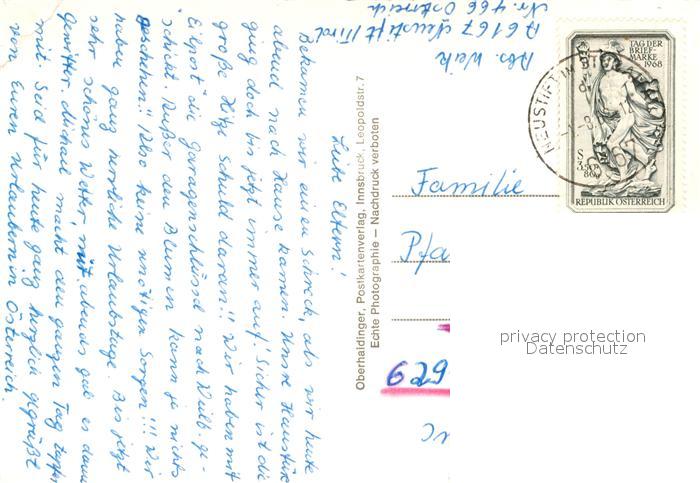 Abs. Weik
A 6167 Neustift/Tirol
Nr. 466 Österreich
Liebe Eltern!
Bekamen wir einen Schreck, als wir heute
abend nach Hause kamen. Unsre Haustür
ging doch bis jetzt immer auf! Sicher ist die
große Hitze Schuld daran!! Wir haben mit
Eilpost die Garagenschlüssel nach Waldb. ge-
schickt. Außer den Blumen kann ja nichts
geschehen!! Also keine unnötigen Sorgen!!! Wir
haben ganz herrliche Urlaubstage. Bis jetzt
sehr schönes Wetter, mit abends gab es dann
Gewitter. Michael macht den ganzen Tag tapfer
mit. Seid für heute ganz herzlich gegrüßt
von Euren Urlaubern in Österreich.
Oberhaidinger, Postkartenverlag, Innsbruck, Leopoldstr. 7
Echte Photographie — Nachdruck verboten
TAG DER
BRIEF-
MARKE
1968
S
3.50+
80 g
REPUBLIK ÖSTERREICH
NEUSTIFT IM STUBAITAL
Familie
Pfa
629
privacy protection
Datenschutz